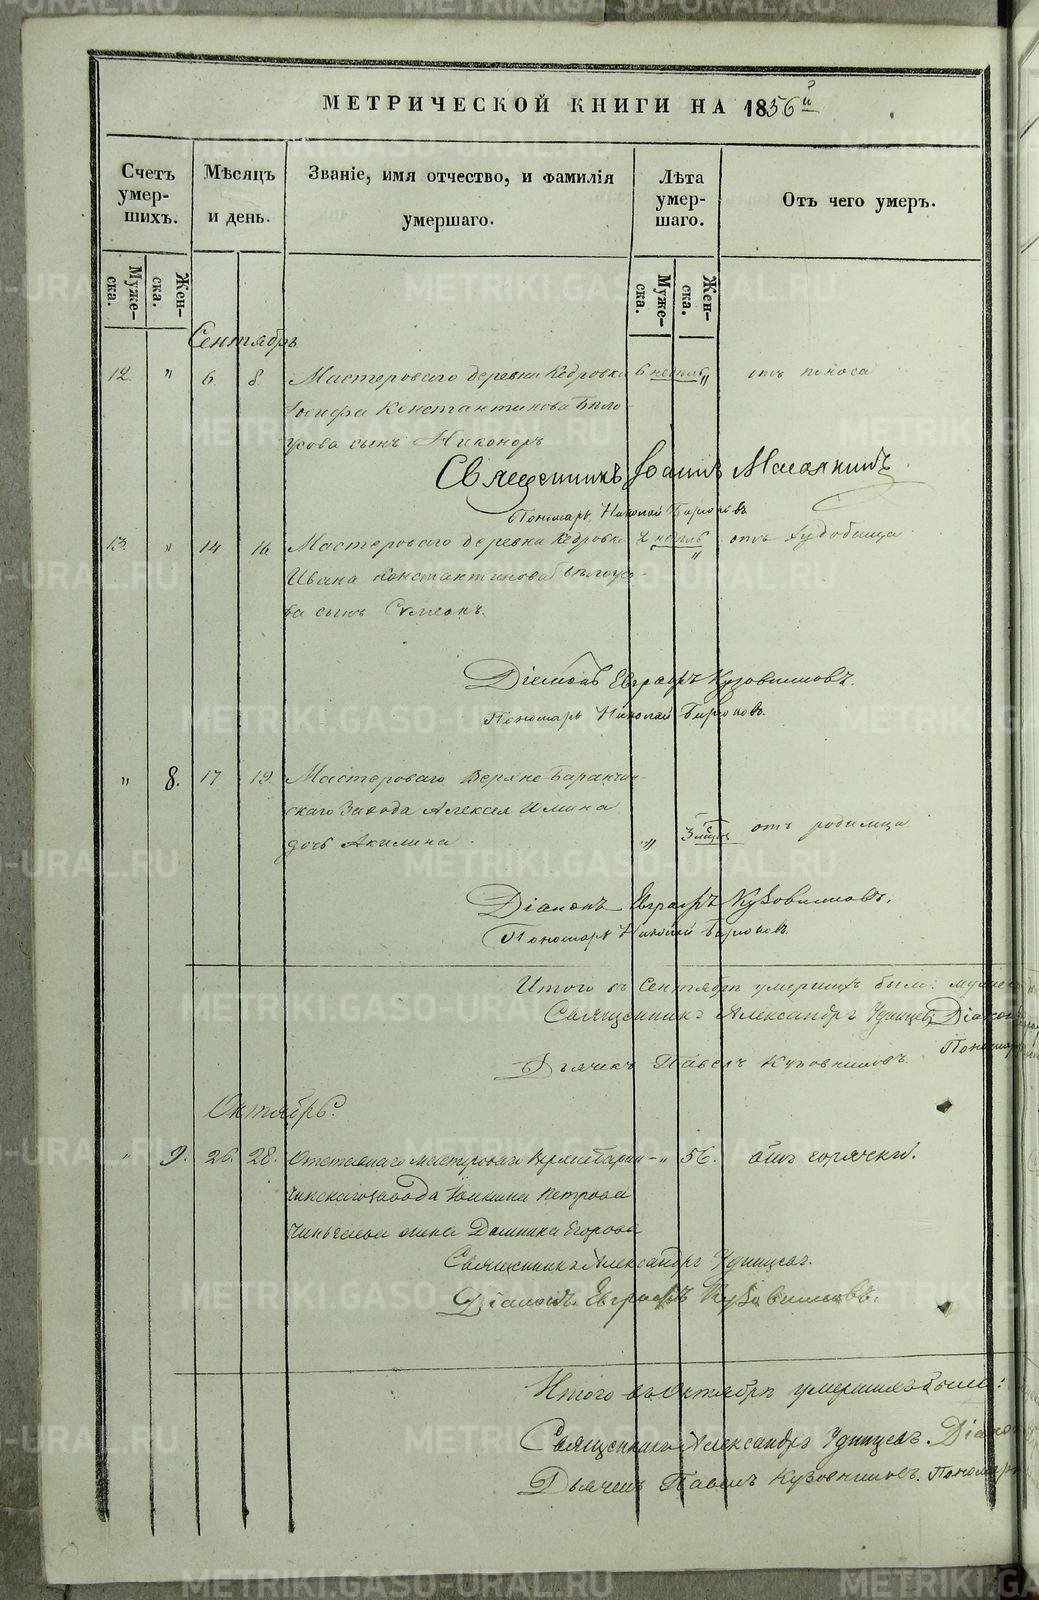 МЕТРИЧЕСКОЙ КНИГИ НА 1856й
Счетъ умер-шихъ.
Мѣсяцъ и день.
Званіе, имя отчество, и фамилія умершаго.
Лѣта умер-шаго.
Отъ чего умеръ.
Муже-ска.
Жен-ска.
Муже-ска.
Жен-ска.
Сентябрь
12. " 6 8 Мастероваго деревни Кедровки 6 недѣль " отъ поноса
Іосифа Константинова Бѣло-
усова сынъ Никоноръ
Священникъ Іоаннъ
Пономарь Николай
13. " 14 16 Мастероваго деревни Кедровки 2 недѣль " отъ худобища
Ивана Константинова Бѣлоусо-
ва сынъ Симеонъ.
Діаконъ Евграфъ Кузовниковъ.
Пономарь Николай
" 8. 17 19. Мастероваго Верхне Баранчин-
скаго Завода Алексея Ильина
дочь Акилина " 3 мѣсяц отъ родимца
Діаконъ Евграфъ Кузовниковъ.
Пономарь Николай
Итого въ Сентябрѣ умершихъ было: мужеск
Священникъ Александръ Удинцевъ, Діакон
Дьячекъ Павелъ Кузовниковъ. Пономарь
Октябрь.
" 9. 26. 28. Отставнаго мастероваго " 56. отъ горячки.
чинскаго завода Петрова
жена Домника Егорова
Священникъ Александръ Удинцевъ.
Діаконъ Евграфъ Кузовниковъ.
Итого въ Октябрѣ умершихъ было:
Священникъ Александръ Удинцевъ. Діакон
Дьячекъ Павелъ Кузовниковъ. Пономарь
METRIKI.GASO-URAL.RU